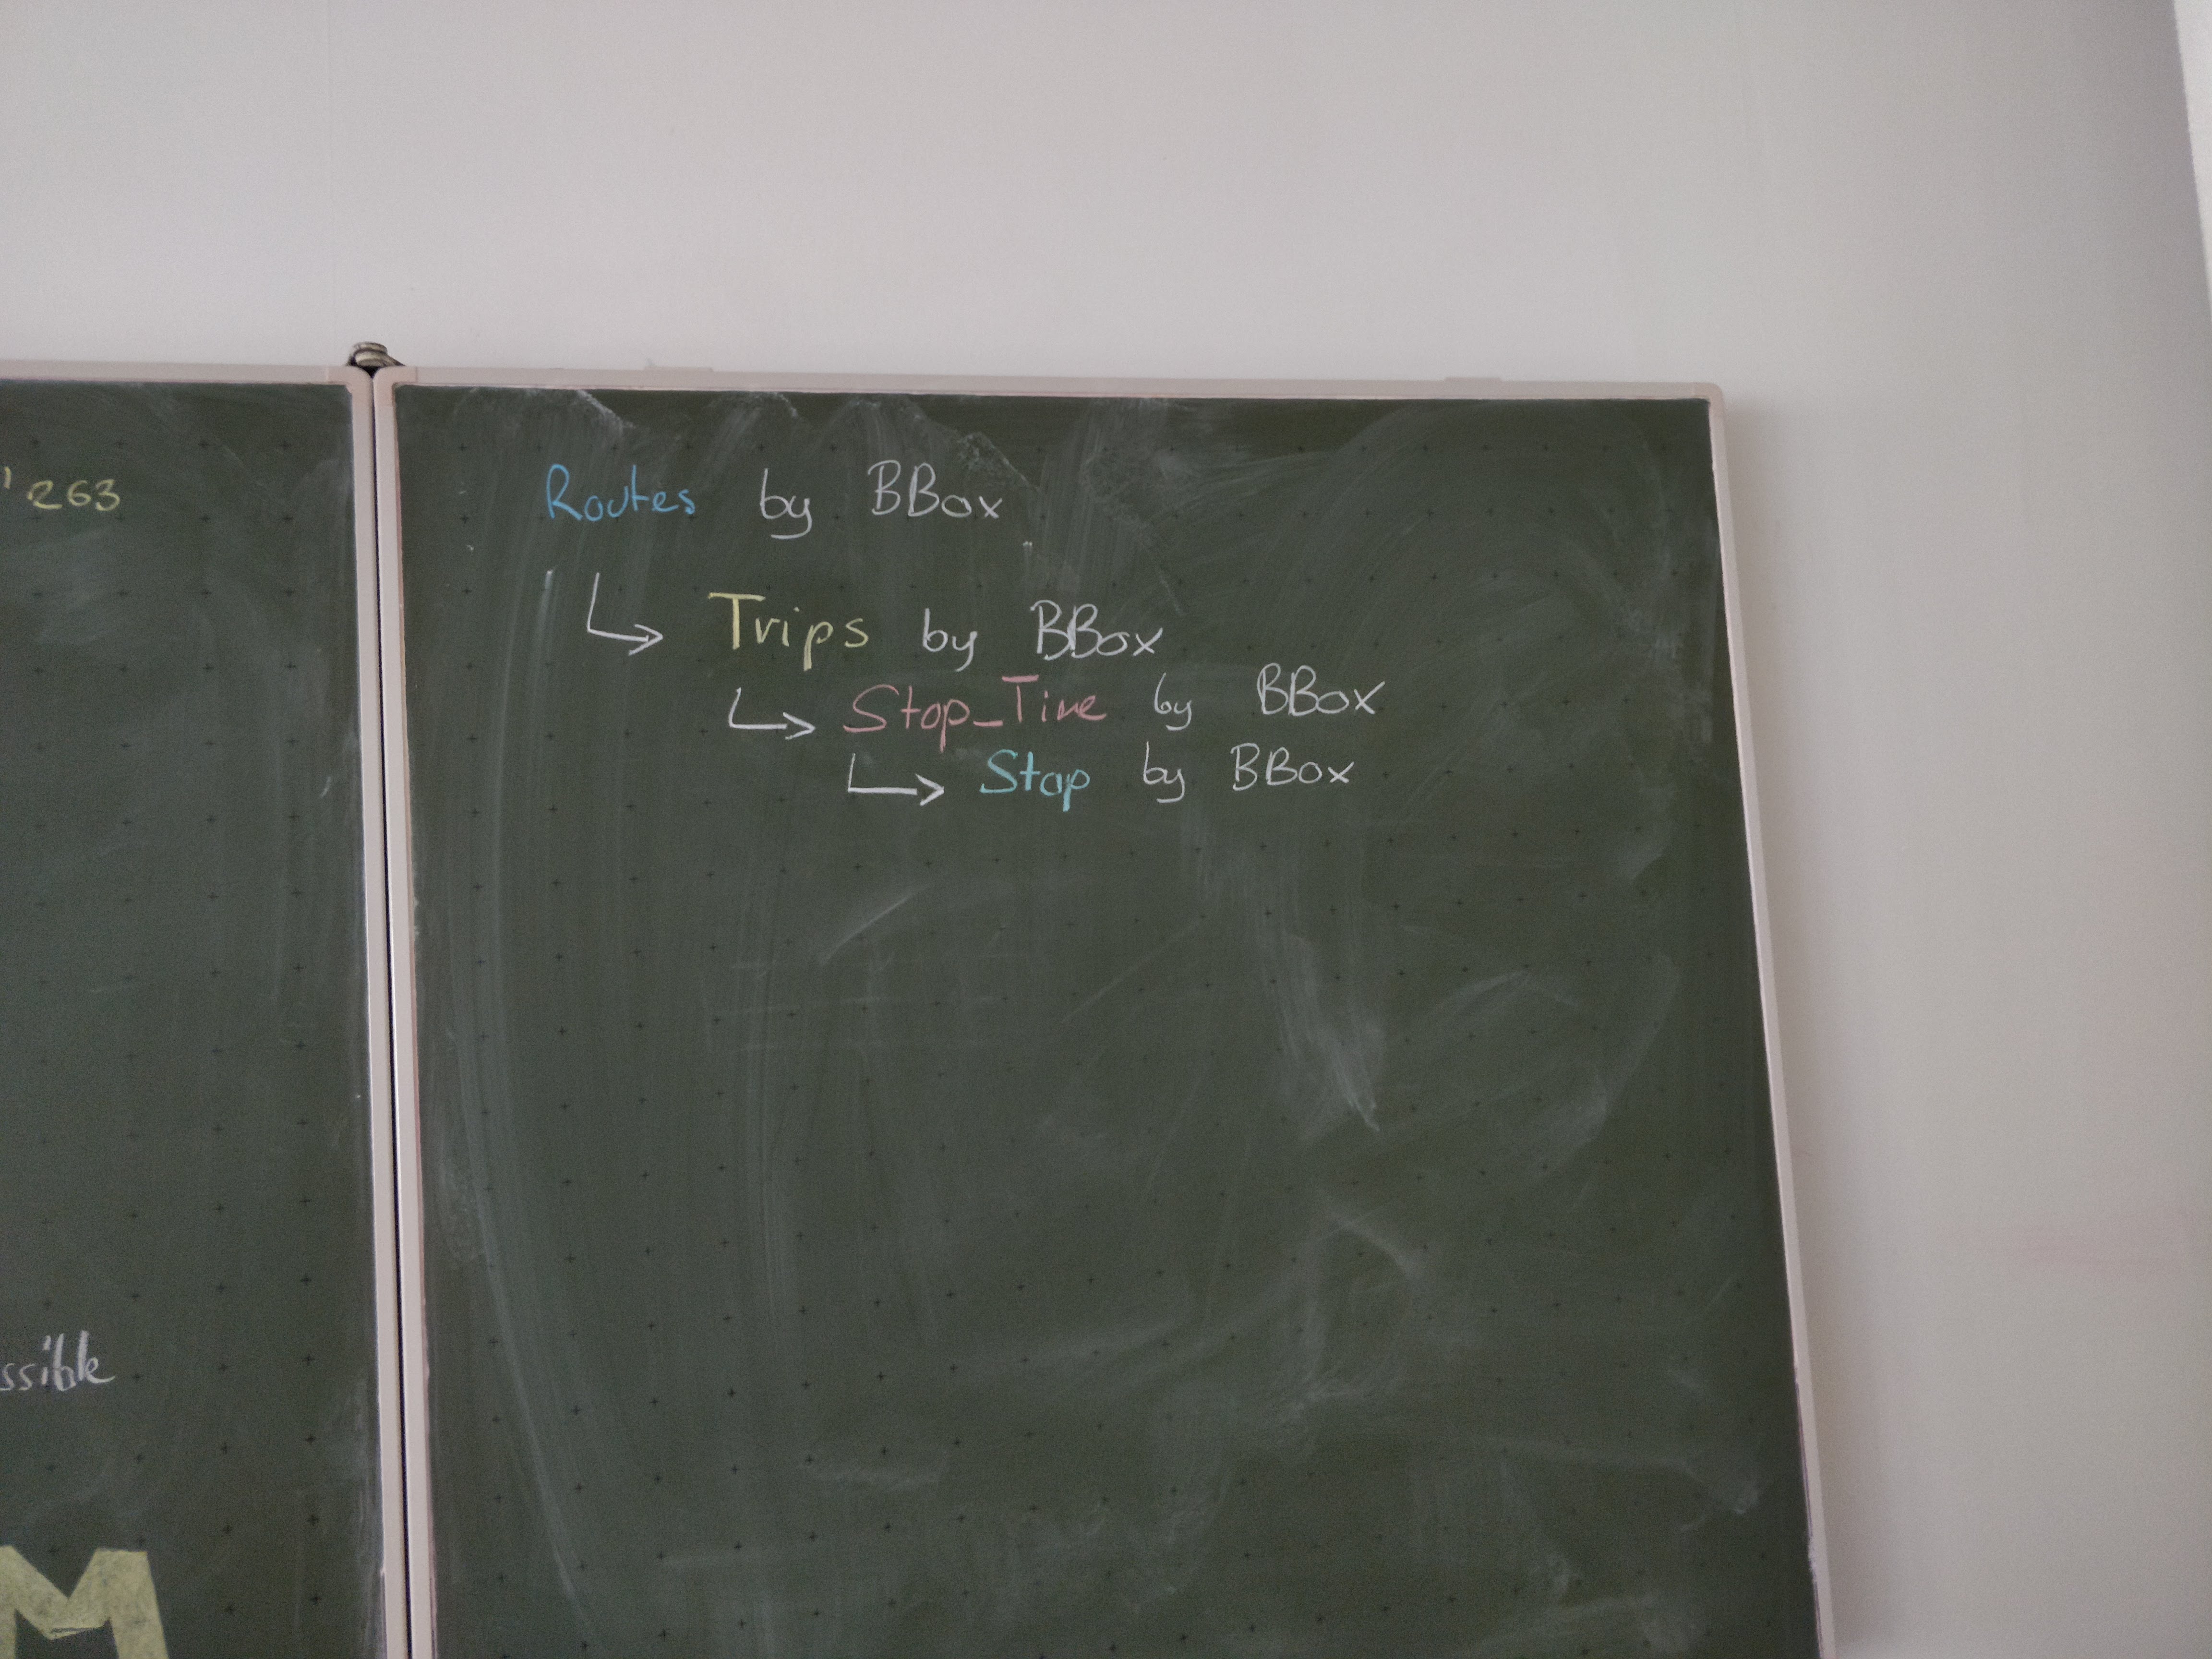 '263
ssible
M
Routes by BBox
↳ Trips by BBox
↳ Stop_Time by BBox
↳ Stop by BBox